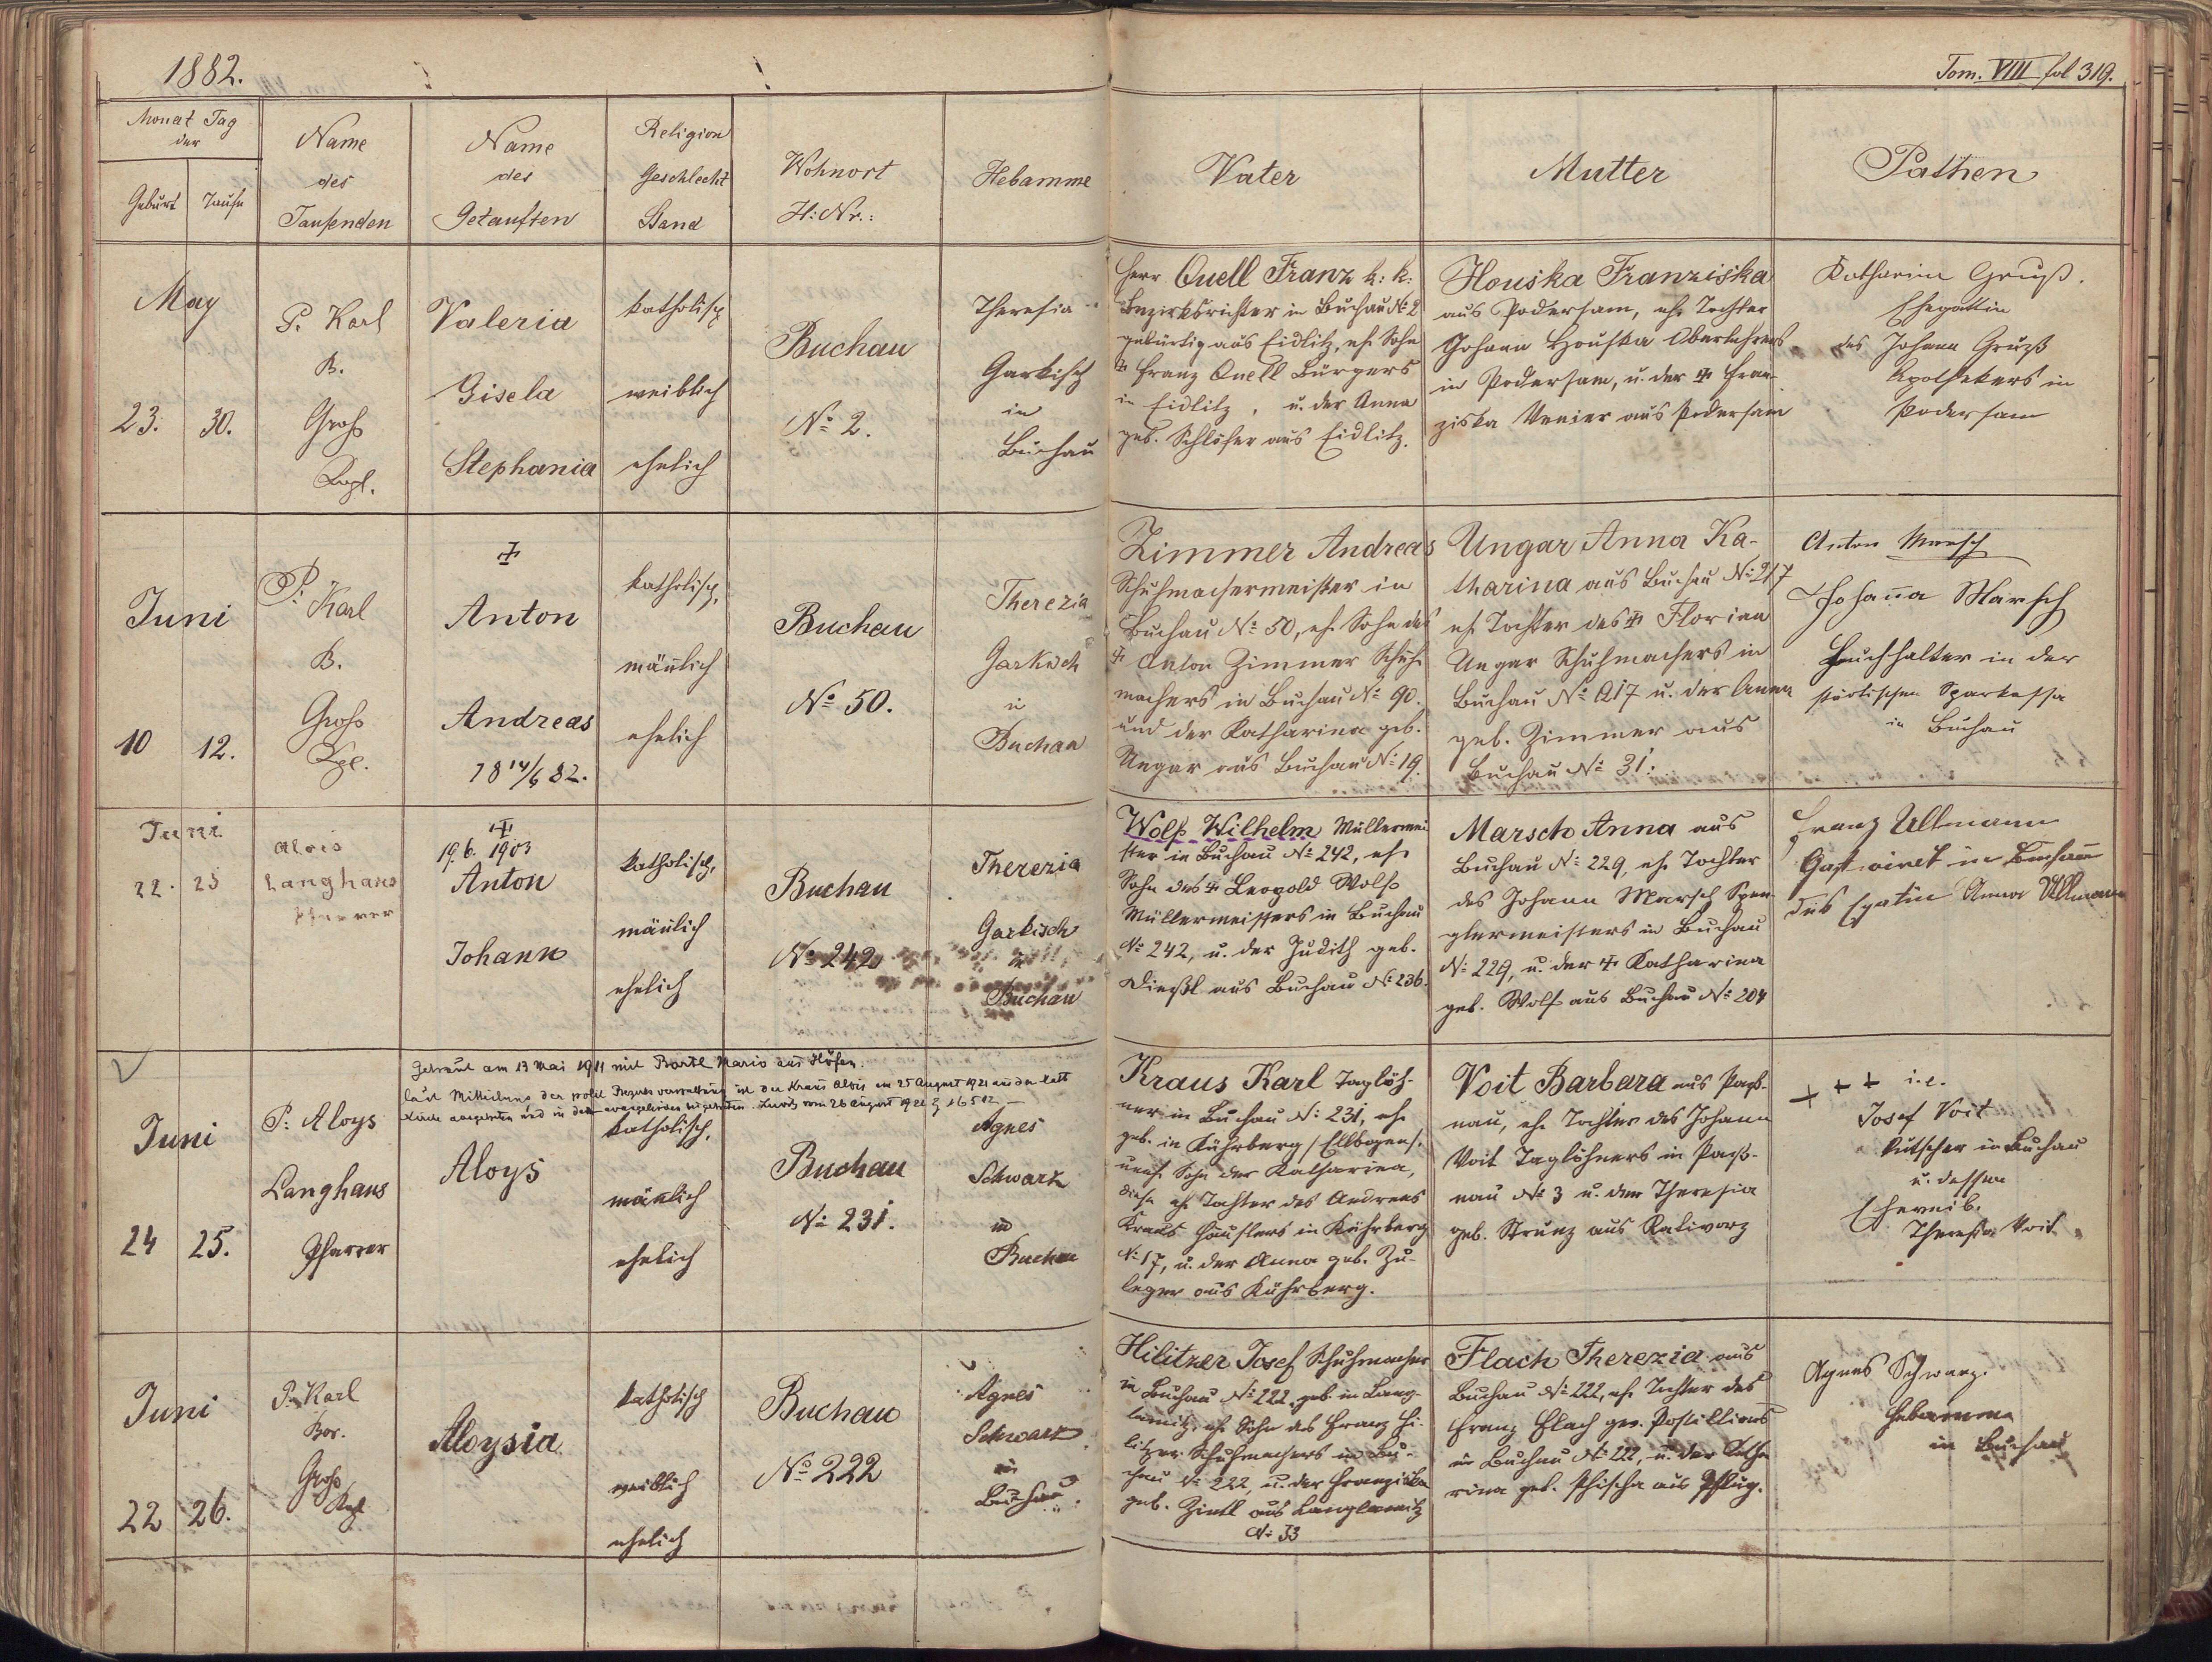 1882.
Tom. VIII fol 319.
Monat Tag
der
Geburt Taufe
Name
des
Taufenden
Name
des
Getauften
Religion
Geschlecht
Stand
Wohnort
H: Nr.:
Hebamme
Vater
Mutter
Pathen
May
23. 30.
P. Karl
B.
Groß
Kpl.
Valeria
Gisela
Stephania
katholisch
weiblich
ehelich
Buchau
No 2.
Theresia
Garkisch
in
Buchau
Herr Quell Franz k: k:
Bezirksrichter in Buchau No 2
gebürtig aus Eidlitz, eh. Sohn
☩ Franz Quell Bürgers
in Eidlitz, u. der Anna
geb. Schlosser aus Eidlitz.
Houska Franziska
aus Podersam, eh. Tochter
Johann Houska Oberlehrers
in Podersam, u. der ☩ Fran-
ziska Venier aus Podersam
Katharina Gruß.
Ehegattin
des Johann Gruß
Apothekers in
Podersam
Juni
10 12.
P: Karl
B.
Groß
Kpl.
☩
Anton
Andreas
18 14/6 82.
katholisch,
mänlich
ehelich
Buchau
No 50.
Therezia
Garkisch
in
Buchau
Zimmer Andreas
Schuhmachermeister in
Buchau No 50, eh. Sohn des
☩ Anton Zimmer Schuh-
machers in Buchau No 90.
und der Katharina geb.
Ungar aus Buchau No 19.
Ungar Anna Ka-
tharina aus Buchau No 217
eh. Tochter des ☩ Florian
Ungar Schuhmachers in
Buchau No 217 u. der Anna
geb. Zimmer aus
Buchau No 31.
Anton Marsch
Johanna Marsch
Buchhalter in der
städtischen Sparkassa
in Buchau
Juni
22. 25
Alois
Langhans
Pfarrer
☩
19. 6. 1903
Anton
Johann
katholisch,
mänlich
ehelich
Buchau
No 242
Therezia
Garkisch
in
Buchau
Wolf Wilhelm Müllermei-
ster in Buchau No 242, eh.
Sohn des ☩ Leopold Wolf
Müllermeisters in Buchau
No 242, u. der Judith geb.
Dießl aus Buchau No 236.
Marsch Anna aus
Buchau No 229, eh. Tochter
des Johann Marsch Spen-
glermeisters in Buchau
No 229, u. der ☩ Katharina
geb. Wolf aus Buchau No 204
Franz Ullmann
Gastwirt in Buchau
Anna Ullmann
Getraut am 13 Mai 1911 mit Bartl Maria aus Höfen.
Laut Mitteilung der polit. Bezirksverwaltung ist der Kraus Alois am 25 August 1921 aus der kath
Kirche ausgetreten und in der evangelischen beigetreten. Zuschr. vom 26 August 1921 Z 16512
Juni
24 25.
P: Aloys
Langhans
Pfarrer
Aloys
katholisch,
mänlich
ehelich
Buchau
No 231.
Agnes
Schwarz
in
Buchau
Kraus Karl Taglöh-
ner in Buchau No 231, eh.
geb. in Kührberg /Ellbogen/.
uneh. Sohn der Katharina,
diese eh. Tochter des Andreas
Kraus Häuslers in Kührberg
No 17, u. der Anna geb. Zu-
leger aus Kührberg.
Voit Barbara aus Paß-
nau, eh. Tochter des Johann
Voit Taglöhners in Paß-
nau No 3 u. der Theresia
geb. Strunz aus Ratiworz
+ + + i.e.
Josef Voit
Kutscher in Buchau
u. dessen
Eheweib.
Theresia Voit
Juni
22 26.
P. Karl
Bor.
Groß
Kpl
Aloysia
katholisch
weiblich
ehelich
Buchau
No 222
Agnes
Schwarz
in
Buchau
Hilitzer Josef Schuhmacher
in Buchau No 222, geb. in Lang-
lamitz, eh. Sohn des Franz Hi-
litzer Schuhmachers in Bu-
chau No 222, u. der Franziska
geb. Zintl aus Langlamitz
No 33
Flach Therezia aus
Buchau No 222, eh. Tochter des
Franz Flach gew. Postillions
in Buchau No 222, u. der Katha-
rina geb. aus Pflug.
Agnes Schwarz.
Hebamme
in Buchau